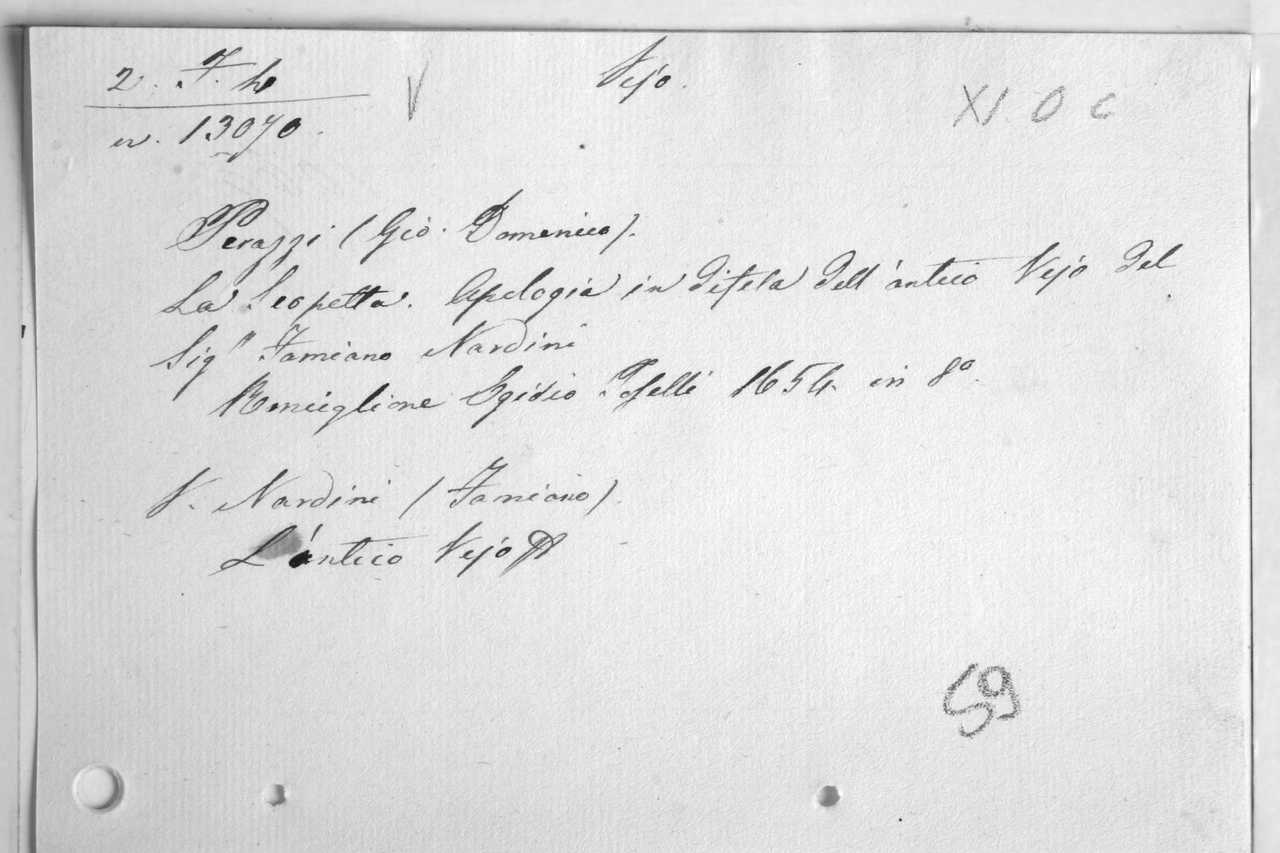 2. F. h V Vejo. XI O C
n. 13070.
Perazzi (Gio. Domenico).
La Scopetta. Apologia in difesa dell'antico Vejo del
Sig.r Famiano Nardini
Ronciglione Egidio Toselli 1654. in 8o.
V. Nardini (Famiano).
L'antico Vejo
59